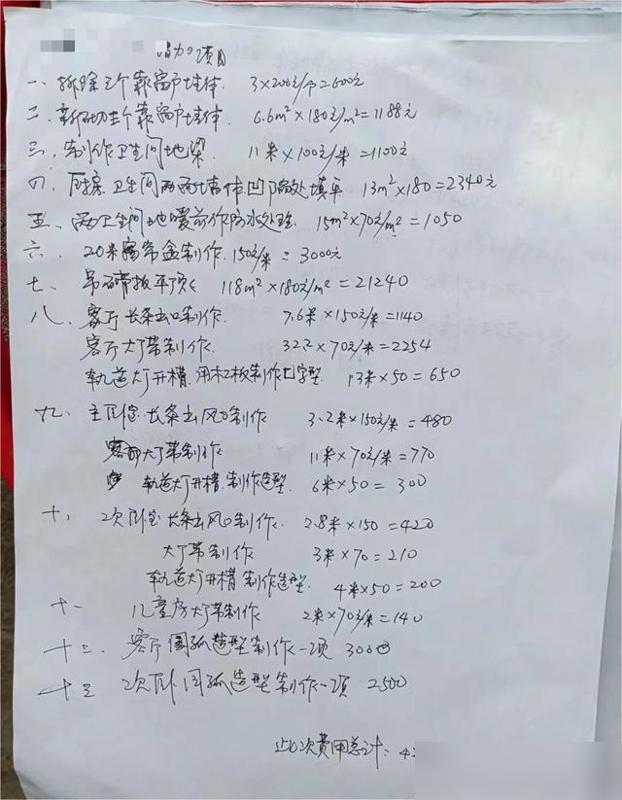 增加项目
一、拆除三个靠窗户墙体. 3×200元/个=600元
二、新砌三个靠窗户墙体. 6.6m²×180元/m²=1188元
三、制作卫生间地梁 11米×100元/米=1100元
四、厨房.卫生间两面墙体凹陷处填平 13m²×180=2340元
五、两卫生间地暖前作防水处理. 15m²×70元/m²=1050
六、20米窗帘盒制作.150元/米=3000元
七、吊 板平顶 118m²×180元/m²=21240
八、客厅长条出口制作. 7.6米×150元/米=1140
客厅灯带制作. 32.2×70元/米=2254
轨道灯开槽.用木工板制作凹字型. 13米×50=650
九、主卧室.长条出风口制作 3.2米×150元/米=480
灯带制作 11米×70元/米=770
轨道灯开槽.制作造型. 6米×50=300
十、2次卧室长条出风口制作. 2.8米×150=420
灯带制作 3米×70=210
轨道灯开槽制作造型. 4米×50=200
十一 儿童房灯带制作 2米×70元/米=140
十二、客厅圆弧造型制作一项 3000
十三 2次卧圆弧造型制作一项 2500
此次费用总计:4